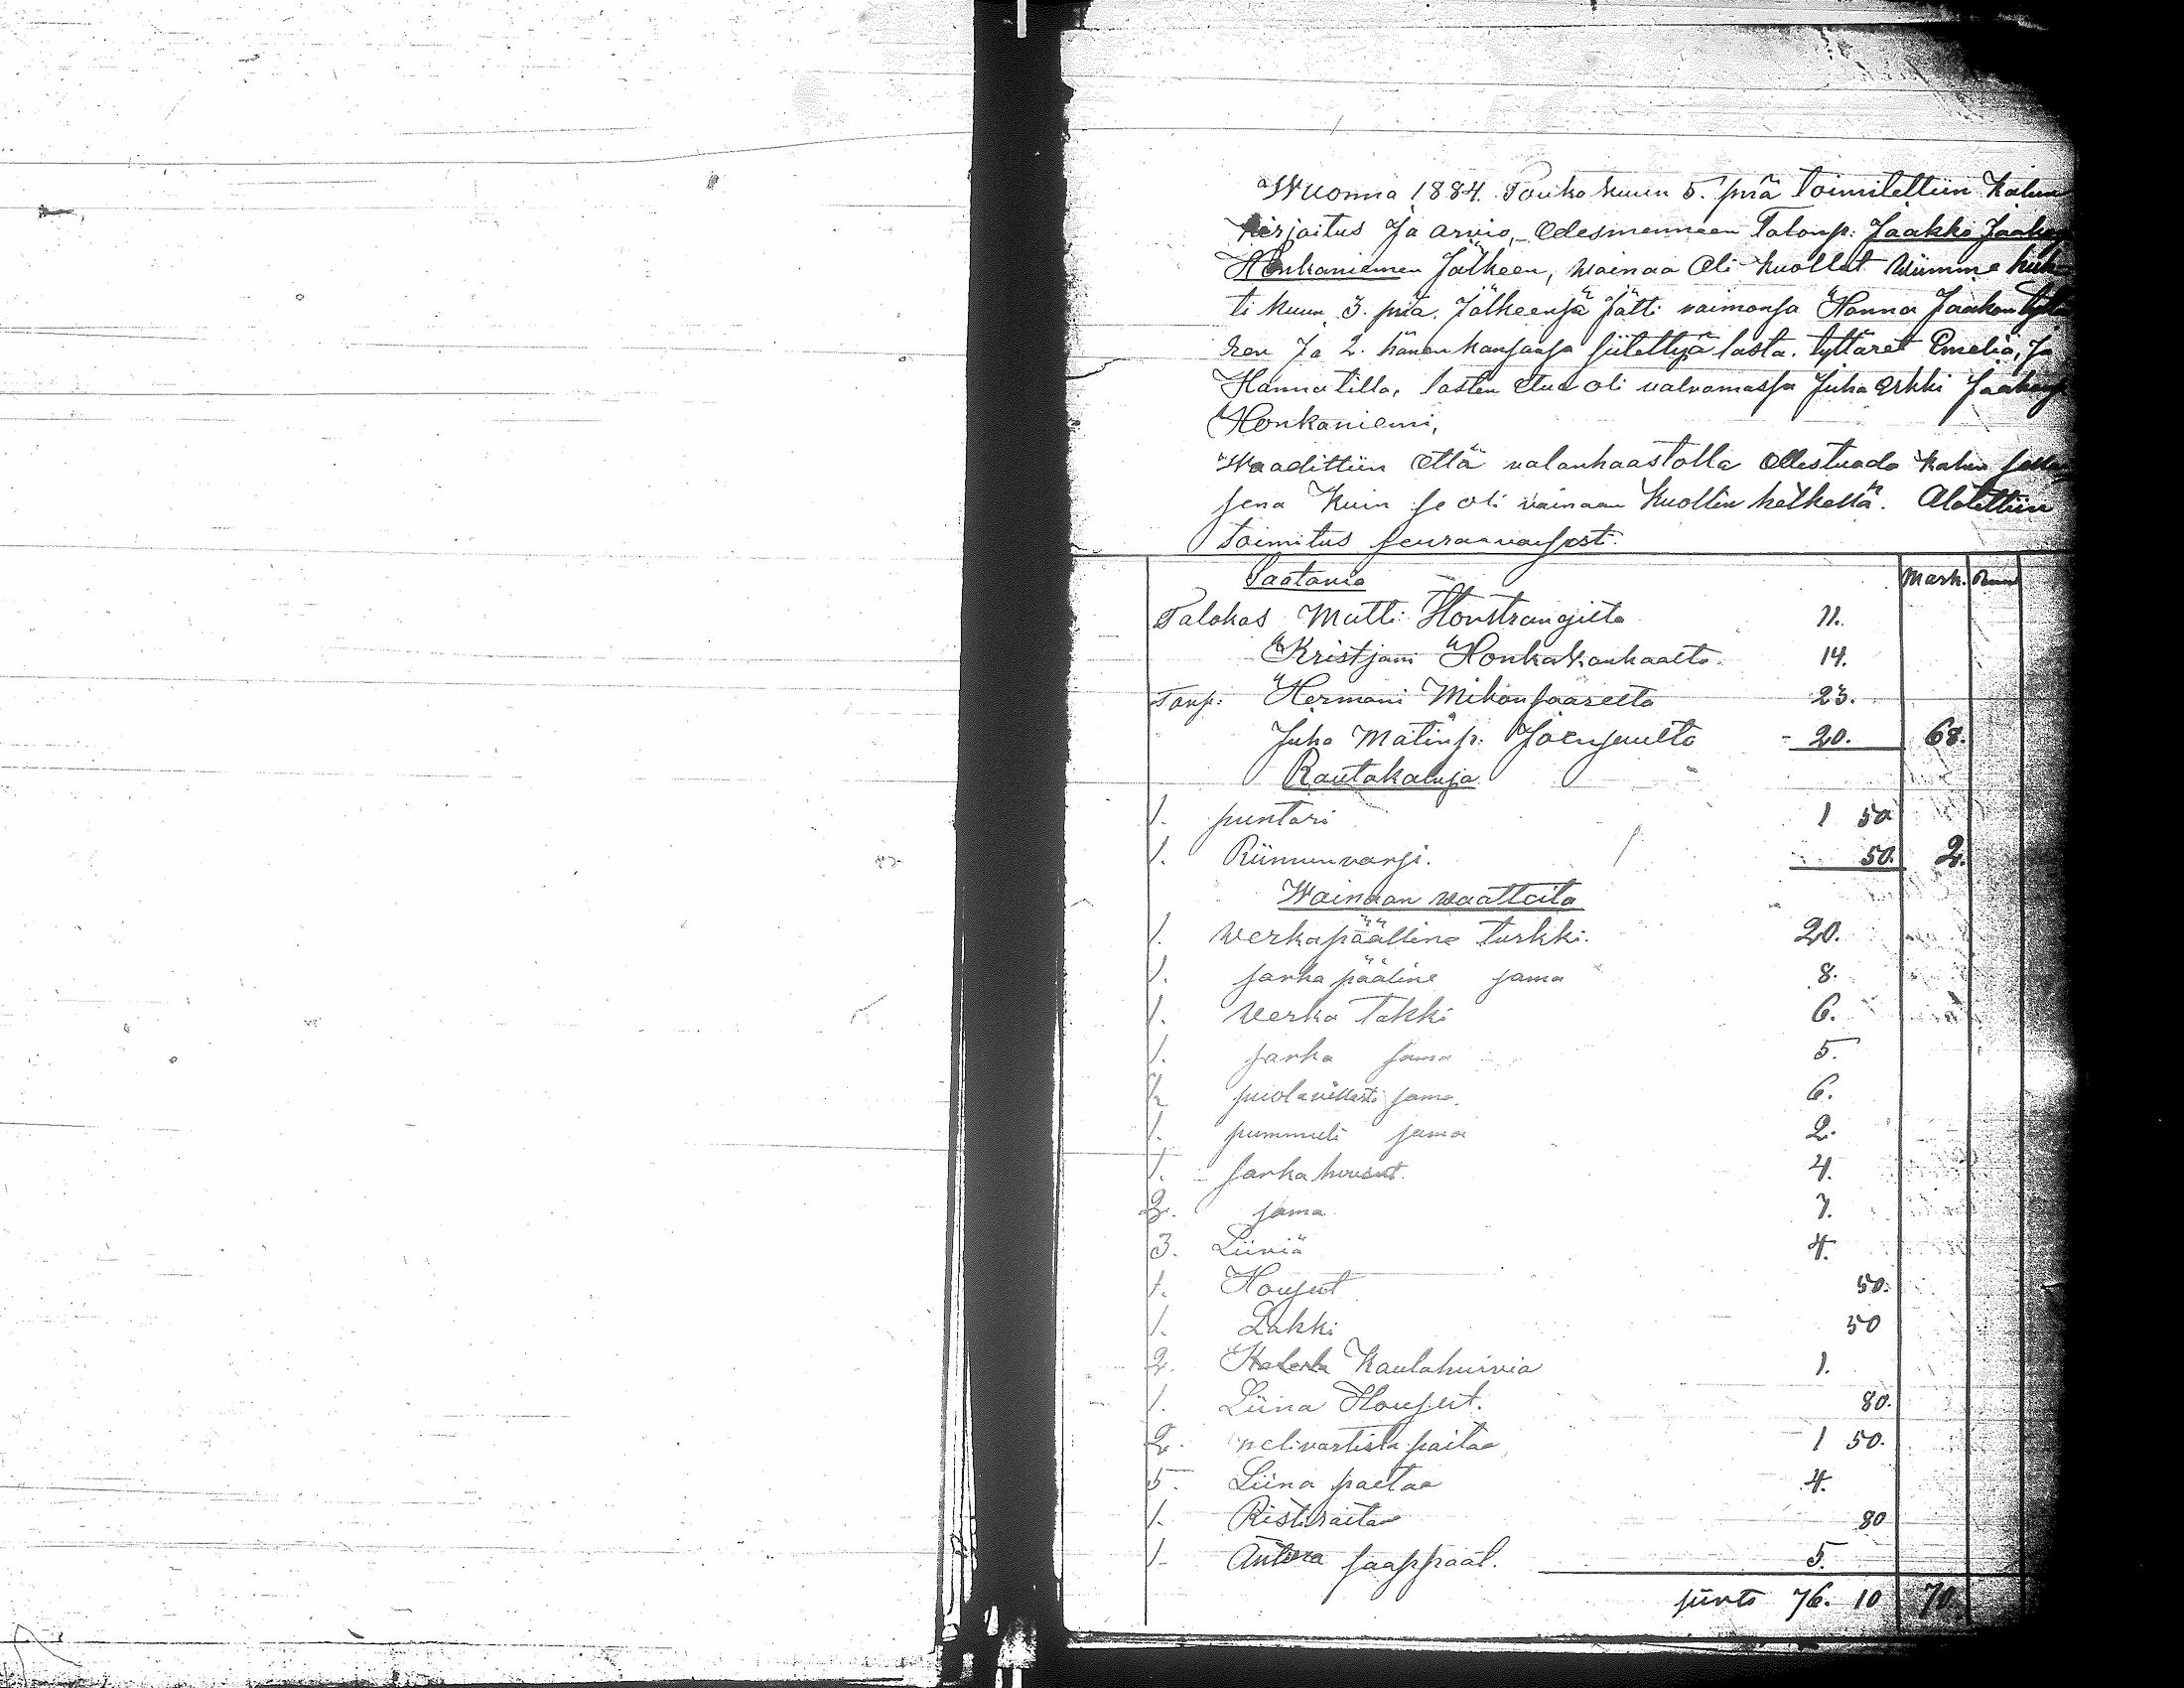 Wuonna 1884. Toukokuun 5. prä toimitettiin Kalun
Kirjoitus Ja arvio, Edesmenneen Talonp: Jaakko Jaakon
Honkaniemen Jälkeen, Wainaa oli kuollut Wiimme huh-
ti kuun 3. prä. Jälkeensä Jätti vaimonsa Hanna Jaakon tytä
ren Ja 2. hänen kansansa siitettyä lasta. tyttäret Emelia, Ja
Hanna tilla, lasten etua oli valvomassa Juha Erkki Jaakonp
Honkaniemi,
Waadittiin Että valanhaastolla Ellestuoda kalun
sena Kuin se oli vainaan Kuollin hetkellä. Alotettiin
toimitus seuraavasest.
Saatavia
Mark.
Talokas Matti 11.
Kristjani Honkakankaalta 14.
Tanp: Hermani Mikonsaarelta 23.
Juha Matinp. Joensuulta - 20. 68.
Rautakaluja
1. puntari 1 50
1. Riimunvarsi. 50. 2.
Wainaan waatteita
1. Werkapäälline turkki. 20.
1. sarka pääline sama 8.
1. Werka Takki 6.
1. sarka sama 5.
puolavillasti sama. 6.
1. pummuli sama 2.
1. Sarka housut. 4.
2. sama 7.
3. Liiviä 4.
1. Housut 50.
1. Lakki 50
2. Kaulahuivia 1.
1. Liina Housut. 80.
2. nelivartista paitaa 1 50.
5. Liina paetaa 4.
1. Ristiraitane 80
1. Antura saappaat. 5.
siirto 76. 10 70.